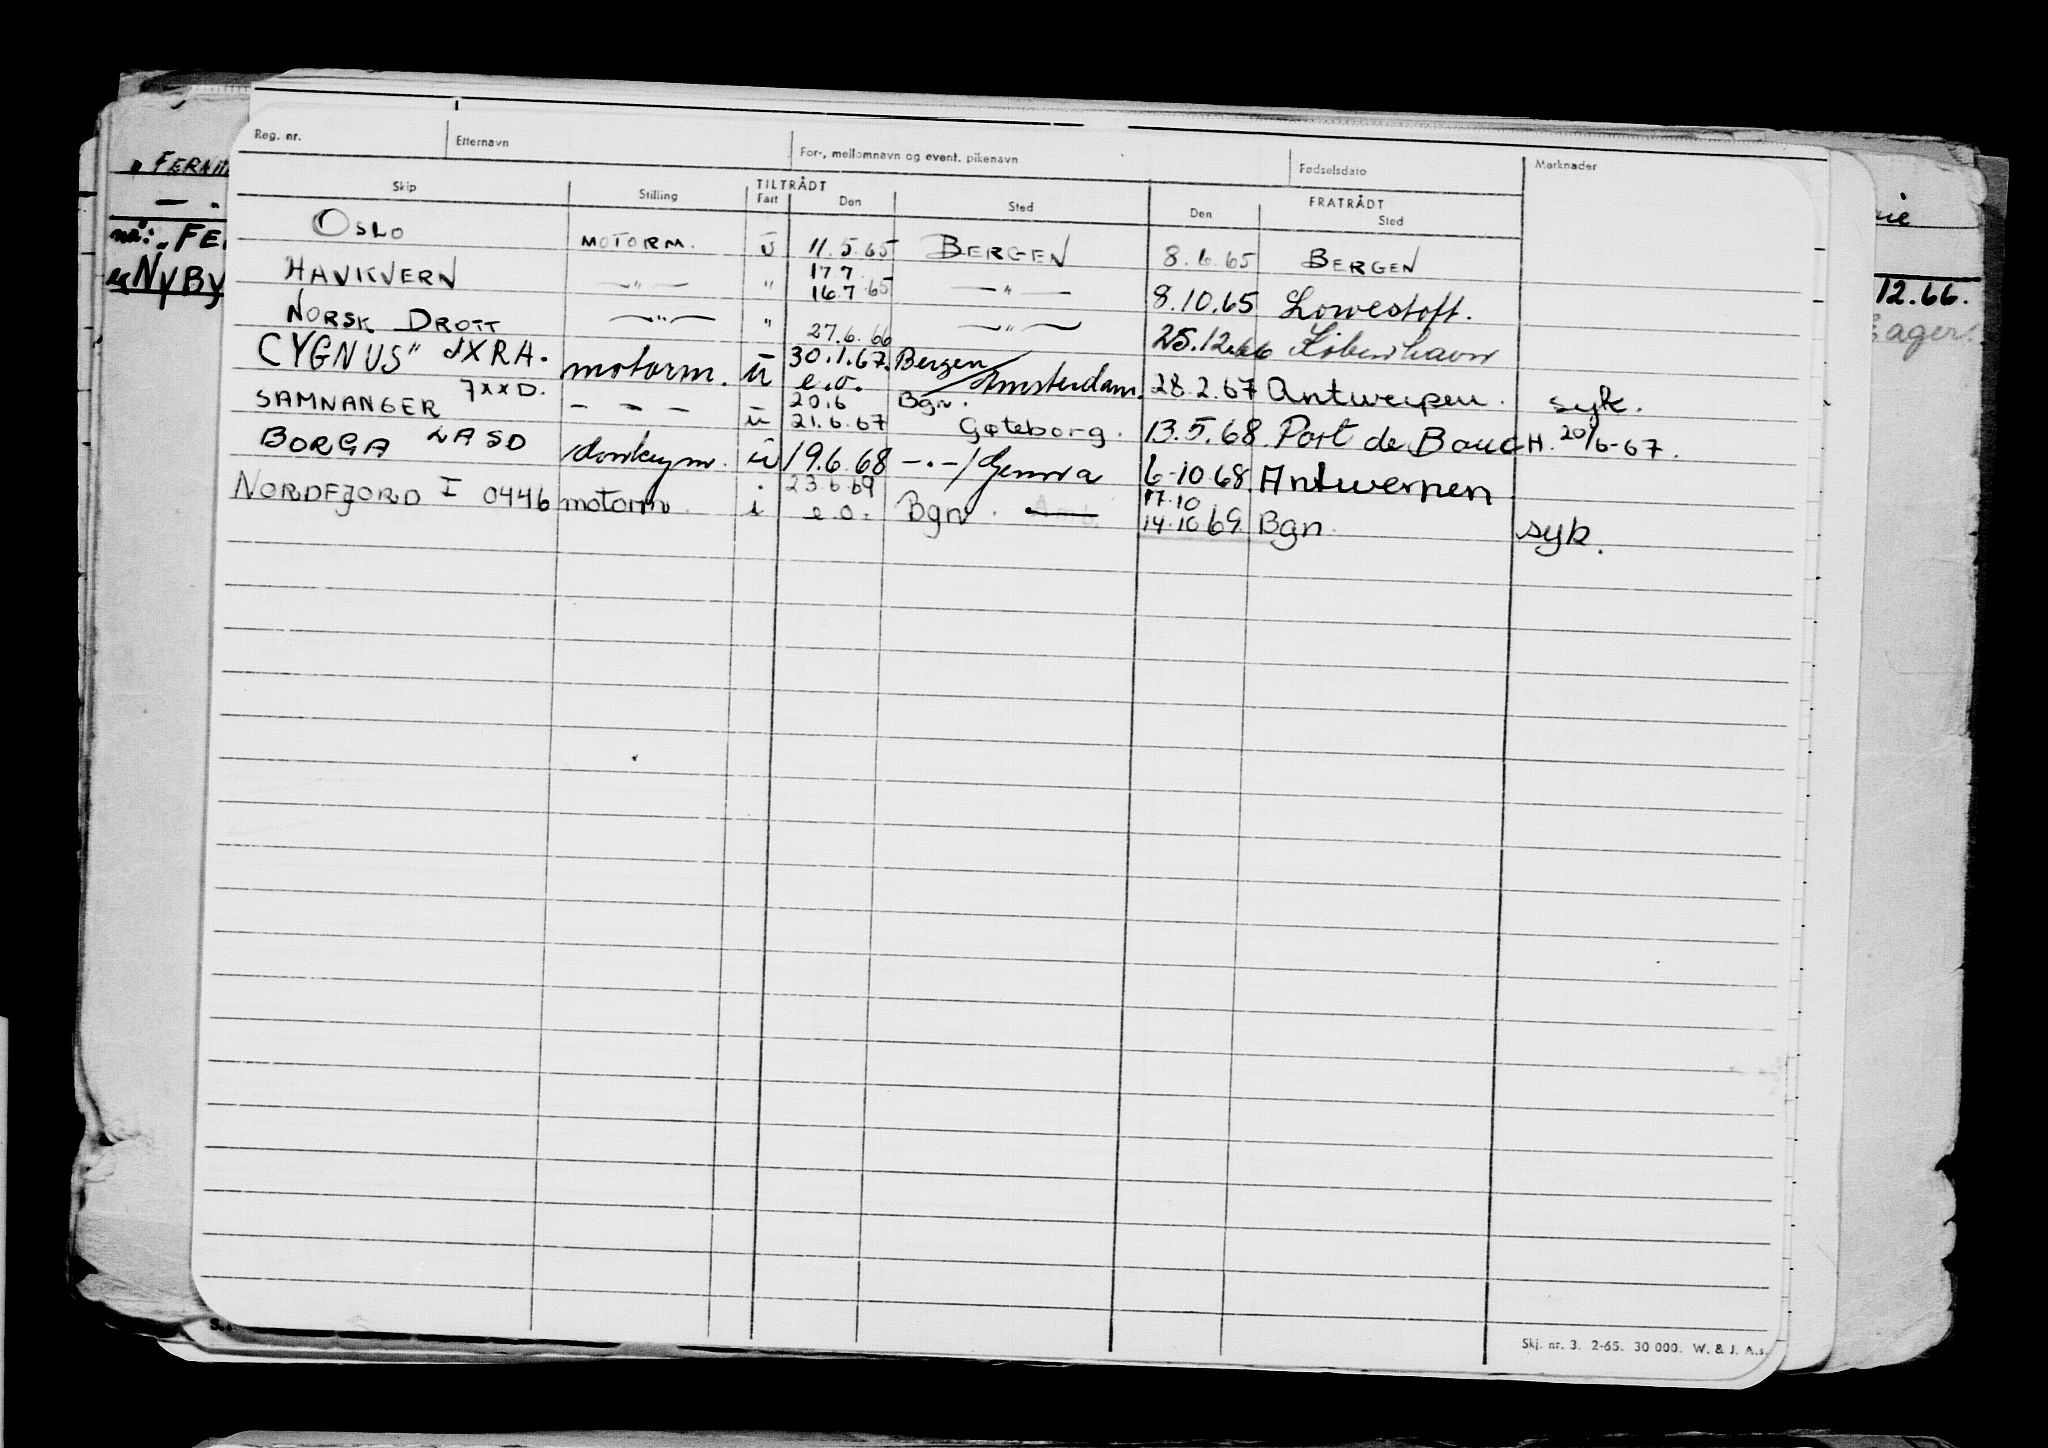 Reg. nr. Etternavn For-, mellomnavn og event. pikenavn Fødselsdato Merknader
Skip Stilling TILTRÅDT Fart Den Sted FRATRÅDT Den Sted
OSLO MOTORM. U 11.5.65 BERGEN 8.6.65 BERGEN
HAVKVERN —"— " 17.7 16.7.65 —"— 8.10.65 Lowestoft.
NORSK DROTT —"— " 27.6.66 —"— 25.12.66 København
CYGNUS" JXRA. motorm. u 30.1.67. e.o. Bergen/Amsterdam. 28.2.67 Antwerpen. syk.
SAMNANGER 7XXD. – – – u 20.6 21.6.67 Bgn. Gøteborg. 13.5.68 Port de BoucH. 20/6-67.
BORGA LASD donkeym. u 19.6.68 –.–/Genova 6-10 68. Antwerpen
NORDFJORD I 0446 motorm. i 23.6.69 e.o. Bgn. 17.10 14.10 69. Bgn. syk.
„FERNM
— "
nå: „FE
„NYBY
12.66.
Skj. nr. 3. 2-65. 30 000. W. & J. A.s.